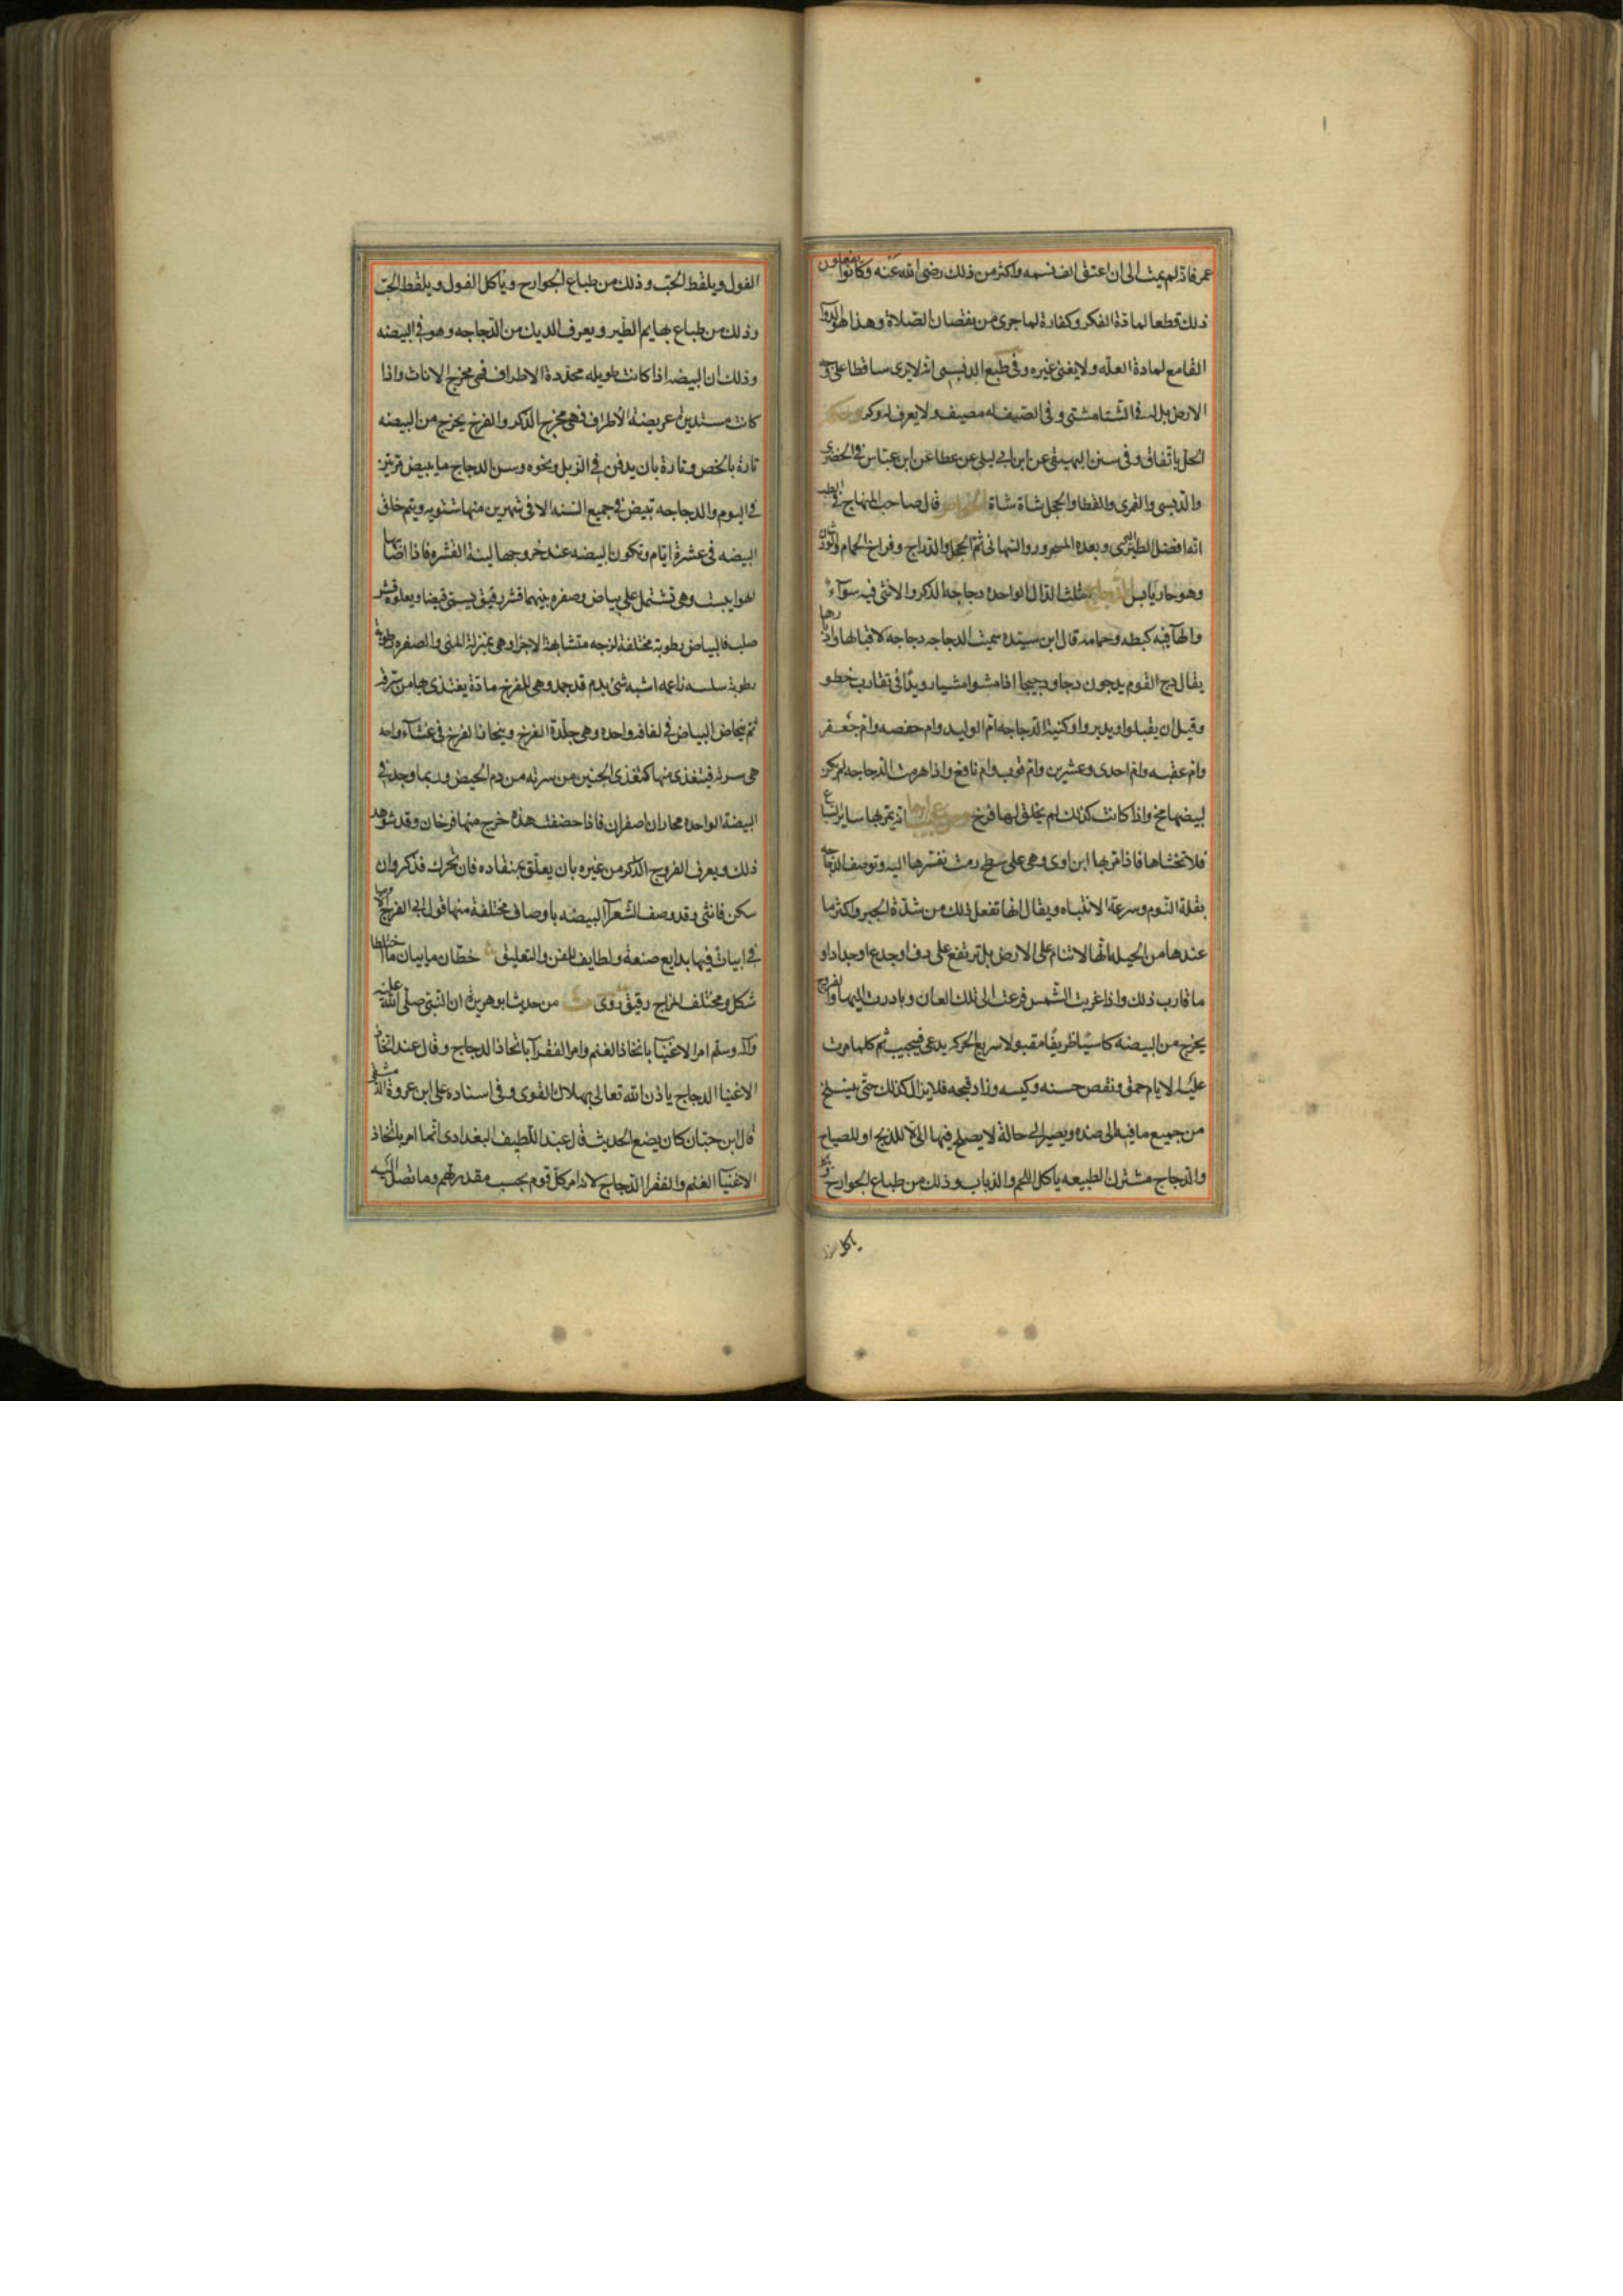 عمر فانه لم يمت الى ان اعتق الف نسمه واكثر من ذلك رضى الله عنه وكانوا يفعلون
ذلك قطعا لمادة الفكر وكفارة لما جرى من نقصان الصلاة وهذا هو الدوآ
القامع لمادة العله ولا يغنى غيره وفى طبع الدبسى انه لا يرى ساقطا على وجه
الارض بل له فى الشتا مشتى وفى الصيف له مصيف ولا يعرف له وكر وحكمه
الحل باتفاق وفى سنن البيهقى عن ابن ابى ليلى عن عطا عن ابن عباس فى الخضرى
والدبسى والقمرى والقطا والحجل شاة شاة الخواص قال صاحب المنهاج فى الطب
انه افضل الطير البرى وبعده الشحرور والسمانى ثم الحجل والدراج وفراخ الحمام والورشان
وهو حار يابس الدجاج مثلث الدال الواحده دجاجه الذكر والانثى فيه سوآء
والهآ فيه كبطه وحمامه قال ابن سيده سميت الدجاجه دجاجه لاقبالها وادبارها
يقال دج القوم يدجون دجا ودجيجا اذا مشوا مشيا رويدا فى تقارب خطو
وقيل ان يقبلوا ويدبروا وكنية الدجاجه ام الوليد وام حفصه وام جعفر
وام عقبه وام احدى وعشرين وام قوب وام نافع واذا هرمت الدجاجه لم يكن
لبيضها مخ واذا كانت كذلك لم يخلق لها فرخ ومن عجيب امرها انه يمر بها ساير السباع
فلا تخشاها فاذا مر بها ابن اوى وهى على سطح رمت نفسها اليه وتوصف الدجاجه
بقلة النوم وسرعة الانتباه ويقال انها تفعل ذلك من شدة الجبن واكثر ما
عندها من الحيله انها لا تنام على الارض بل ترتفع على رف او جذع او جدار او
ما قارب ذلك واذا غربت الشمس فزعت الى تلك العاده وبادرت اليها والفروج
يخرج من البيضه كاسيا ظريفا مقبولا سريع الحركه يدعى فيجيب ثم كلما مرت
عليه الايام حمق ونقص حسنه وكيسه وزاد قبحه فلا يزال كذلك حتى ينسلخ
من جميع ما فيه الى ضده ويصير الى حالة لا يصلح فيها الا للذبح او للصياح
والدجاج مشترك الطبيعه ياكل اللحم والذباب وذلك من طباع الجوارح وياكل
ياكل
الفول ويلقط الحب وذلك من طباع الجوارح وياكل الفول ويلقط الحب
وذلك من طباع بهايم الطير ويعرف الديك من الدجاجه وهو فى البيضه
وذلك ان البيضه اذا كانت طويله محددة الاطراف فهى مخرج الاناث واذا
كانت مستديرة عريضة الاطراف فهى مخرج الذكر والفرخ يخرج من البيضه
تارة بالحضن وتارة بان يدفن فى الزبل ونحوه ومن الدجاج ما يبيض مرتين
فى اليوم والدجاجه تبيض فى جميع السنه الا فى شهرين منها شتويه ويتم خلق
البيضه فى عشرة ايام وتكون البيضه عند خروجها لينة القشره فاذا اصابها
الهوا يبست وهى تشتمل على بياض وصفره بينهما قشر رقيق يسمى قيضا ويعلوه قشر
صلب فالبياض رطوبة مختلفة لزجه متشابهة الاجزا وهى بمنزلة المنى والصفره رطوبة
رطوبة سلسه ناعمه اشبه شىء بدم قد جمد وهى للفرخ مادة يغتذى بها من سرته
ثم يحاض البياض فى لفافه واحده وهى جلدة الفرخ وينحاز الفرخ فى غشآء واحد
هى سرته فيتغذى منها كتغذى الجنين من سرته من دم الحيض وربما وجد فى
البيضة الواحده محاران اصفران فاذا حضنت هذه خرج منها فرخان وقد شوهد
ذلك ويعرف الفروج الذكر من غيره بان يعلق بمنقاده فان تحرك فذكر وان
سكن فانثى وقد وصف الشعرآ البيضه باوصاف مختلفة منها قول ابى الفرج
فى ابيات فيها بدايع صنعة ولطايف للفن والتعليق خطان ما بيان ما اختلطا
شكل ومختلف المزاج رقيق روى من حديث ابو هريرة ان النبى صلى الله عليه
واله وسلم امر الاغنيا باتخاذ الغنم وامر الفقرآ باتخاذ الدجاج وقال عند اتخاذ
الاغنيا الدجاج ياذن الله تعالى بهلاك القوى وفى اسناده على ابن عروة الدمشقى
قال ابن حبان كان يضع الحديث قال عبد اللطيف البغدادى انما امر باتخاذ
الاغنيآ الغنم والفقرا الدجاج لانه امر كل قوم بحسب مقدرتهم وما تصل اليه